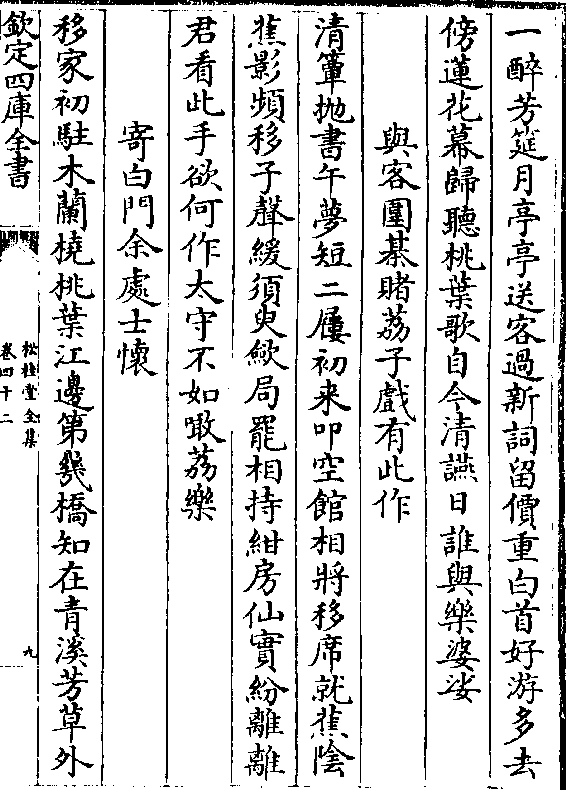 一醉芳筵月亭亭送客過新詞留價重白首好游多去
傍蓮花幕歸聽桃葉歌自今清讌日誰與樂婆娑
與客圍棊賭荔子戲有此作
清簟抛書午夢短二屨初来叩空館相將移席就蕉陰
蕉影頻移子聲緩須臾斂局罷相持紺房仙實紛離離
君看此手欲何作太守不如噉荔樂
寄白門余處士懷
移家初駐木蘭橈桃葉江邊第幾橋知在青溪芳草外
欽定四庫全書
松桂堂全集
卷四十二
九